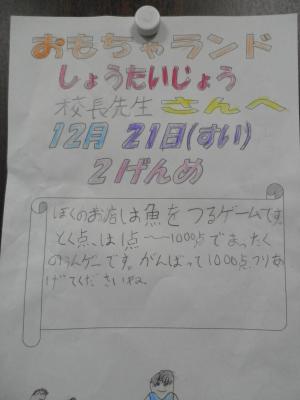 おもちゃランド
しょうたいじょう
校長先生 さんへ
12月 21日(すい)
2げんめ
ぼくのお店は魚をつるゲームです。
とく点は1点〜1000点であったく
のうんゲーです。がんばって1000点つりあ
げてくださいね。